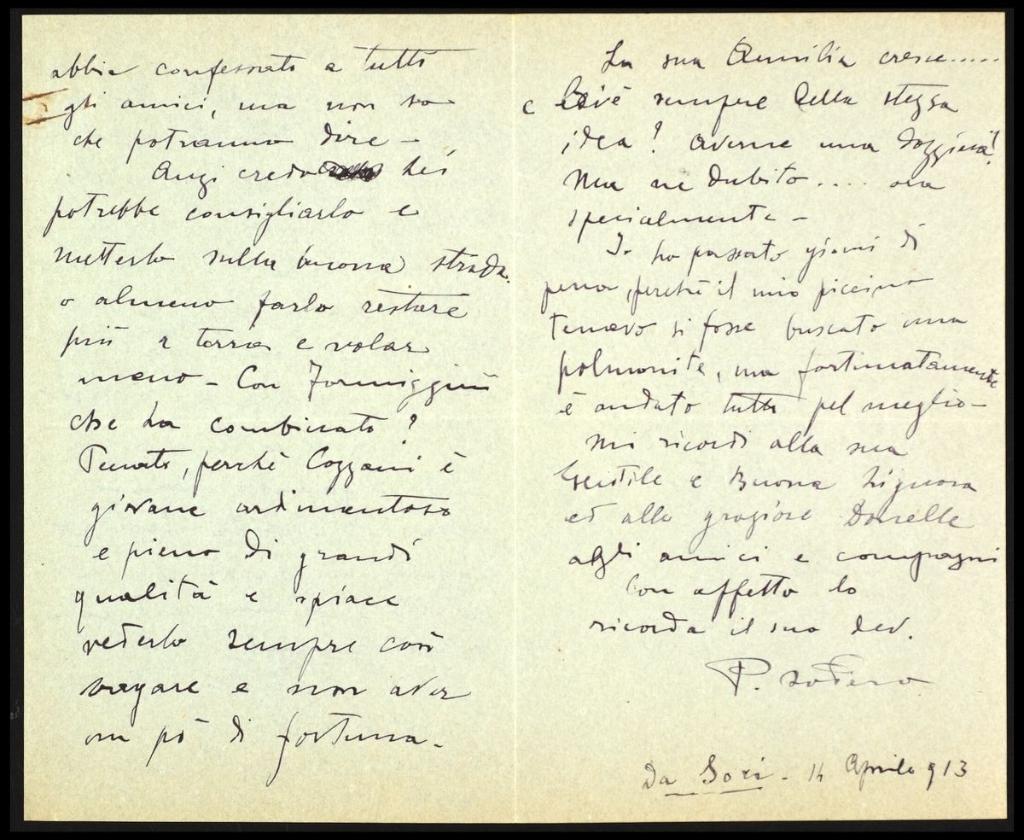 abbia confessato a tutti
gli amici, ma non so
che potranno dire -
Anzi credo Lei
potrebbe consigliarlo e
metterlo sulla buona strada.
o almeno farlo restare
più a terra e volar
meno - Con Formiggini
che ha combinato?
Peccato, perchè Cozzani è
giovane ardimentoso
e pieno di grandi
qualità e spiace
vederlo sempre così
vagare e non aver
un pò di fortuna -
La sua Aemilia cresce.....
e Lei è sempre della stessa
idea? averne una dozzina!
Ma ne dubito.... ora
specialmente -
Io ho passato giorni di
pena, perchè il mio piccino
temevo si fosse buscato una
polmonite, ma fortunatamente
è andato tutto pel meglio -
Mi ricordi alla sua
Gentile e Buona Signora
ed alle graziose Donzelle
agli amici e compagni
Con affetto lo
ricorda il suo dev.
P.
Da Sori - 14 Aprile 913